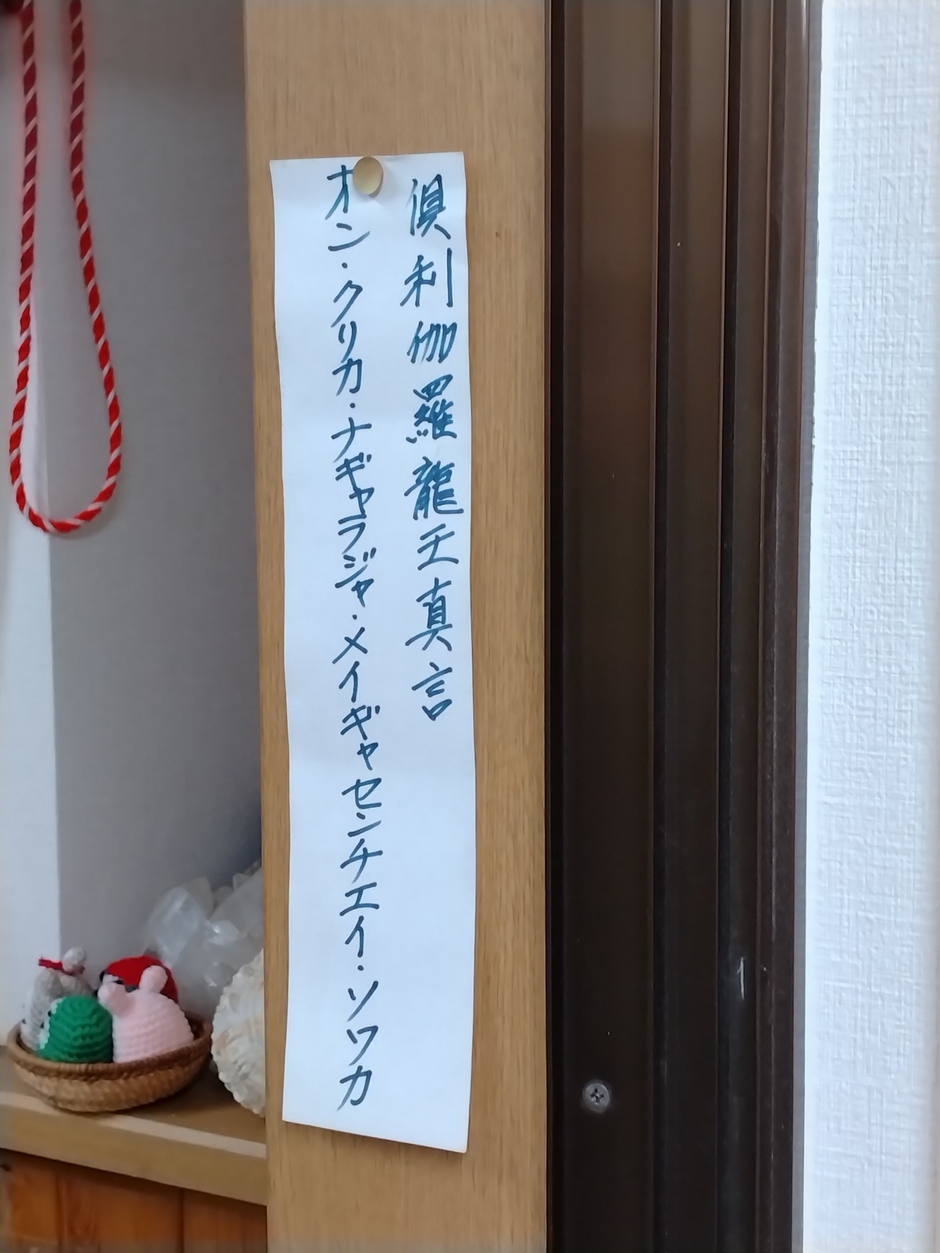 倶利伽羅龍王真言
オン・クリカ・ナギャラジャ・メイギャセンチエイ・ソワカ